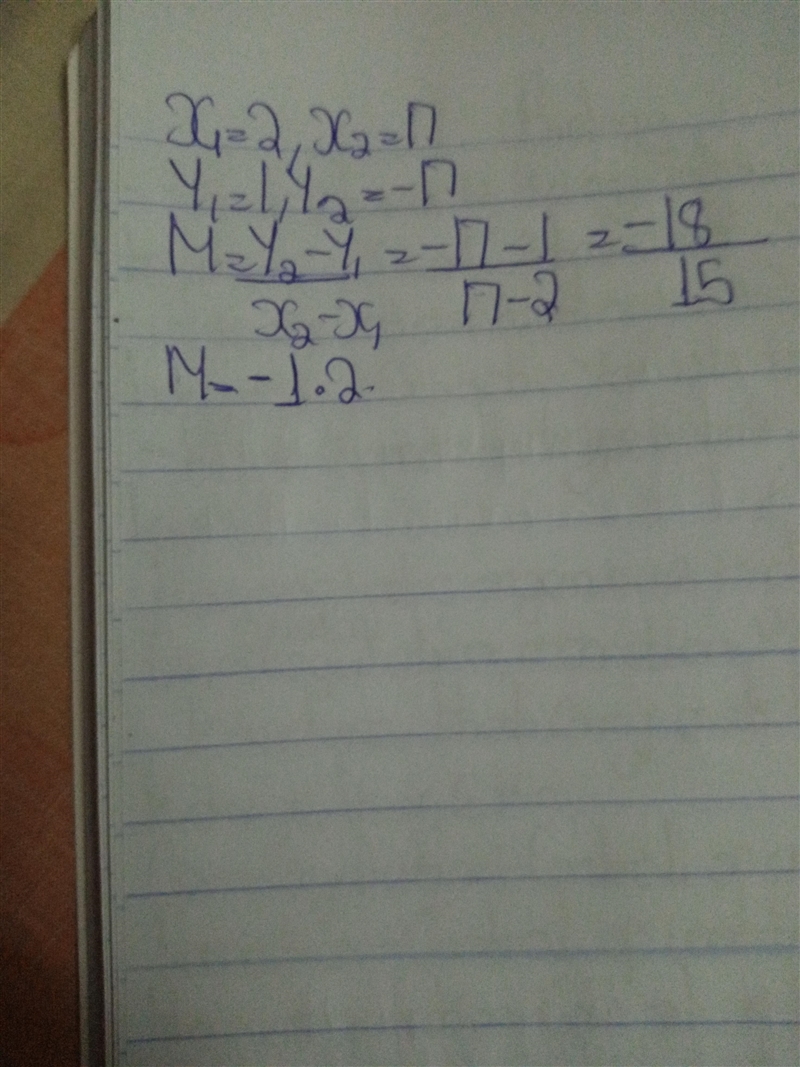 x₁=2, x₂=17
Y₁=1, Y₂=-17
M=Y₂-Y₁/x₂-x₁ = -17-1/17-2 = -18/15
M=-1.2.